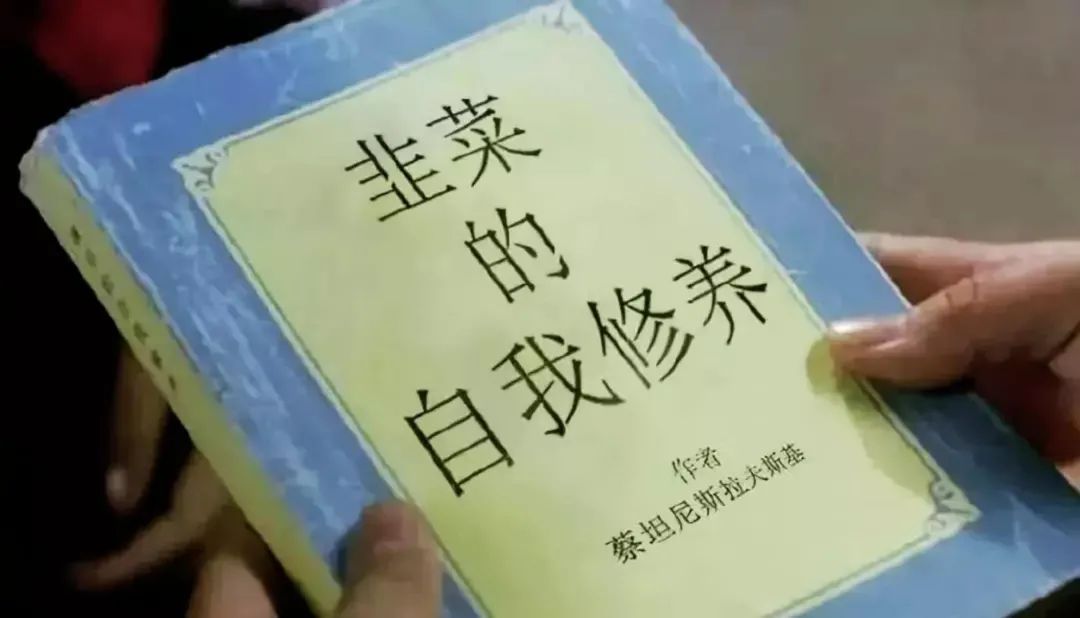 韭菜
的
自我修养
作者
蔡坦尼斯拉夫斯基